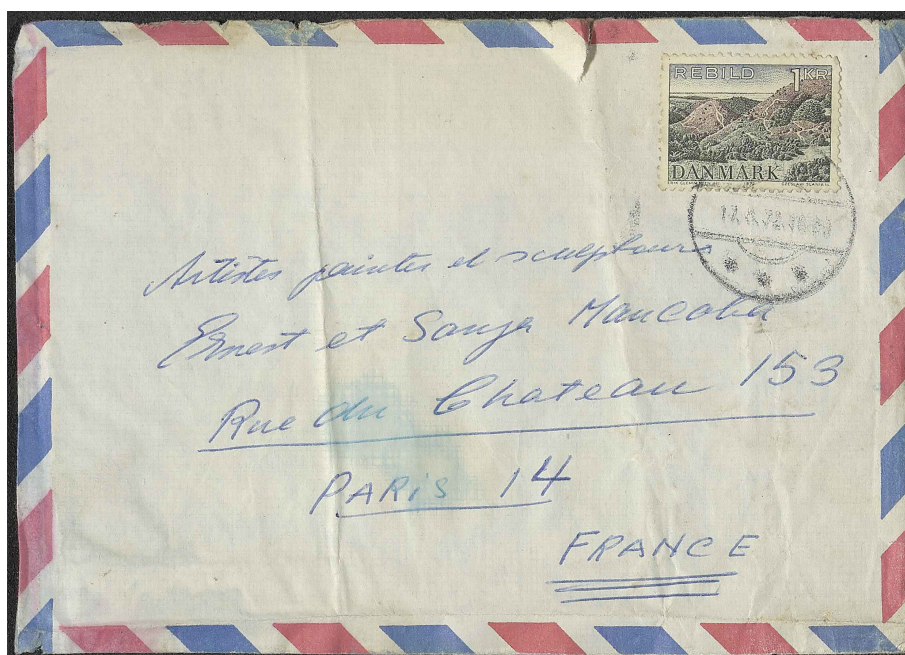 REBILD 1KR
DANMARK
Artistes peintes et sculpteurs
Ernest et Sonja Mancoba
Rue du Chateau 153
PARIS 14
FRANCE